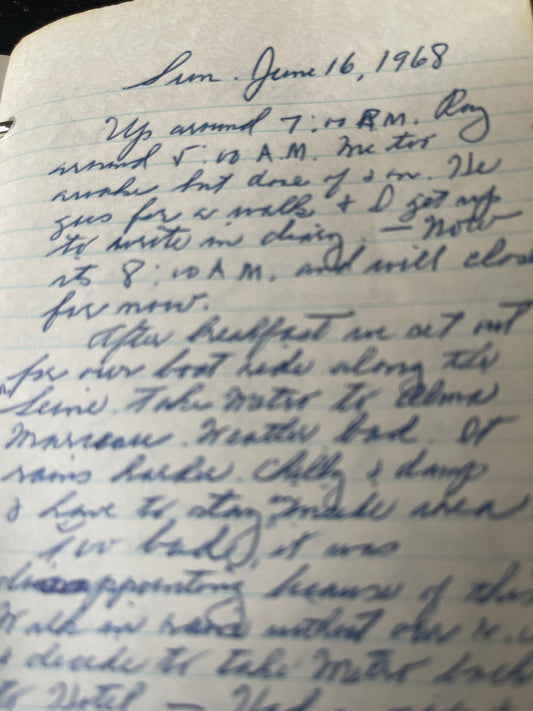 Sun. June 16, 1968
Up around 7:00 A.M. Ray
around 5:00 A.M. Me too
awake but doze off & on. He
goes for a walk & I get up
to write in diary. — Now
its 8:10 A.M. and will close
for now.
After breakfast we set out
for our boat ride along the
Seine. Take Metro to Alma
Marceau. Weather bad. It
rains harder. Chilly & damp
& have to stay inside area
Too bad, it was
disappointing because of this
Walk in rain without our
& decide to take Metro back
to Hotel — Had a